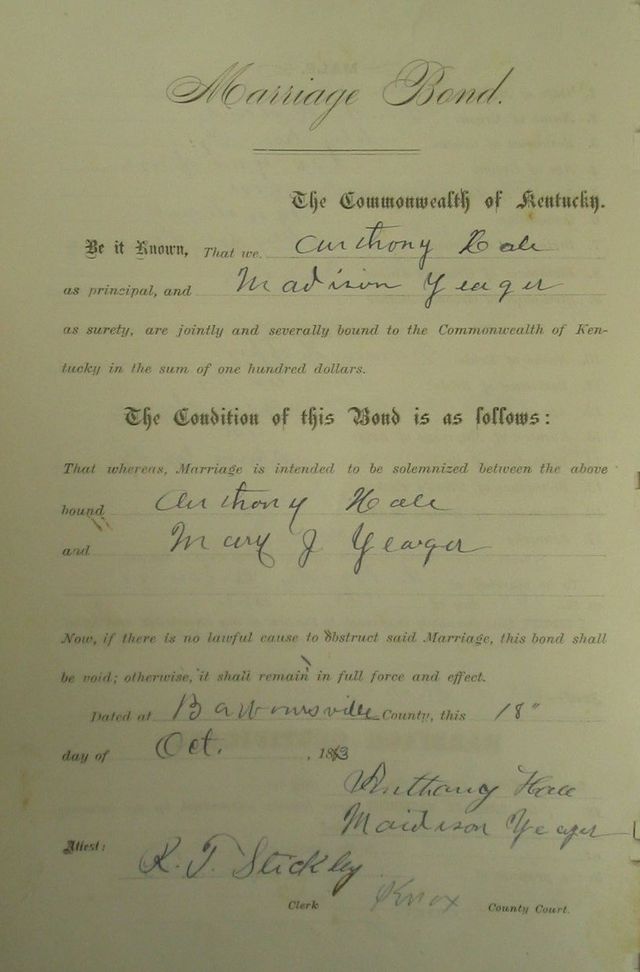 Marriage Bond.
The Commonwealth of Kentucky.
Be it Known, That we Anthony Hale
as principal, and Madison Yeager
as surety, are jointly and severally bound to the Commonwealth of Ken-
tucky in the sum of one hundred dollars.
The Condition of this Bond is as follows:
That whereas, Marriage is intended to be solemnized between the above
bound Anthony Hale
and Mary J Yeager
Now, if there is no lawful cause to obstruct said Marriage, this bond shall
be void; otherwise, it shall remain in full force and effect.
Dated at Barbourville County, this 18"
day of Oct. , 18
Anthony Hale
Maidison Yeager
Attest:
R. T. Stickley
Clerk Knox County Court.